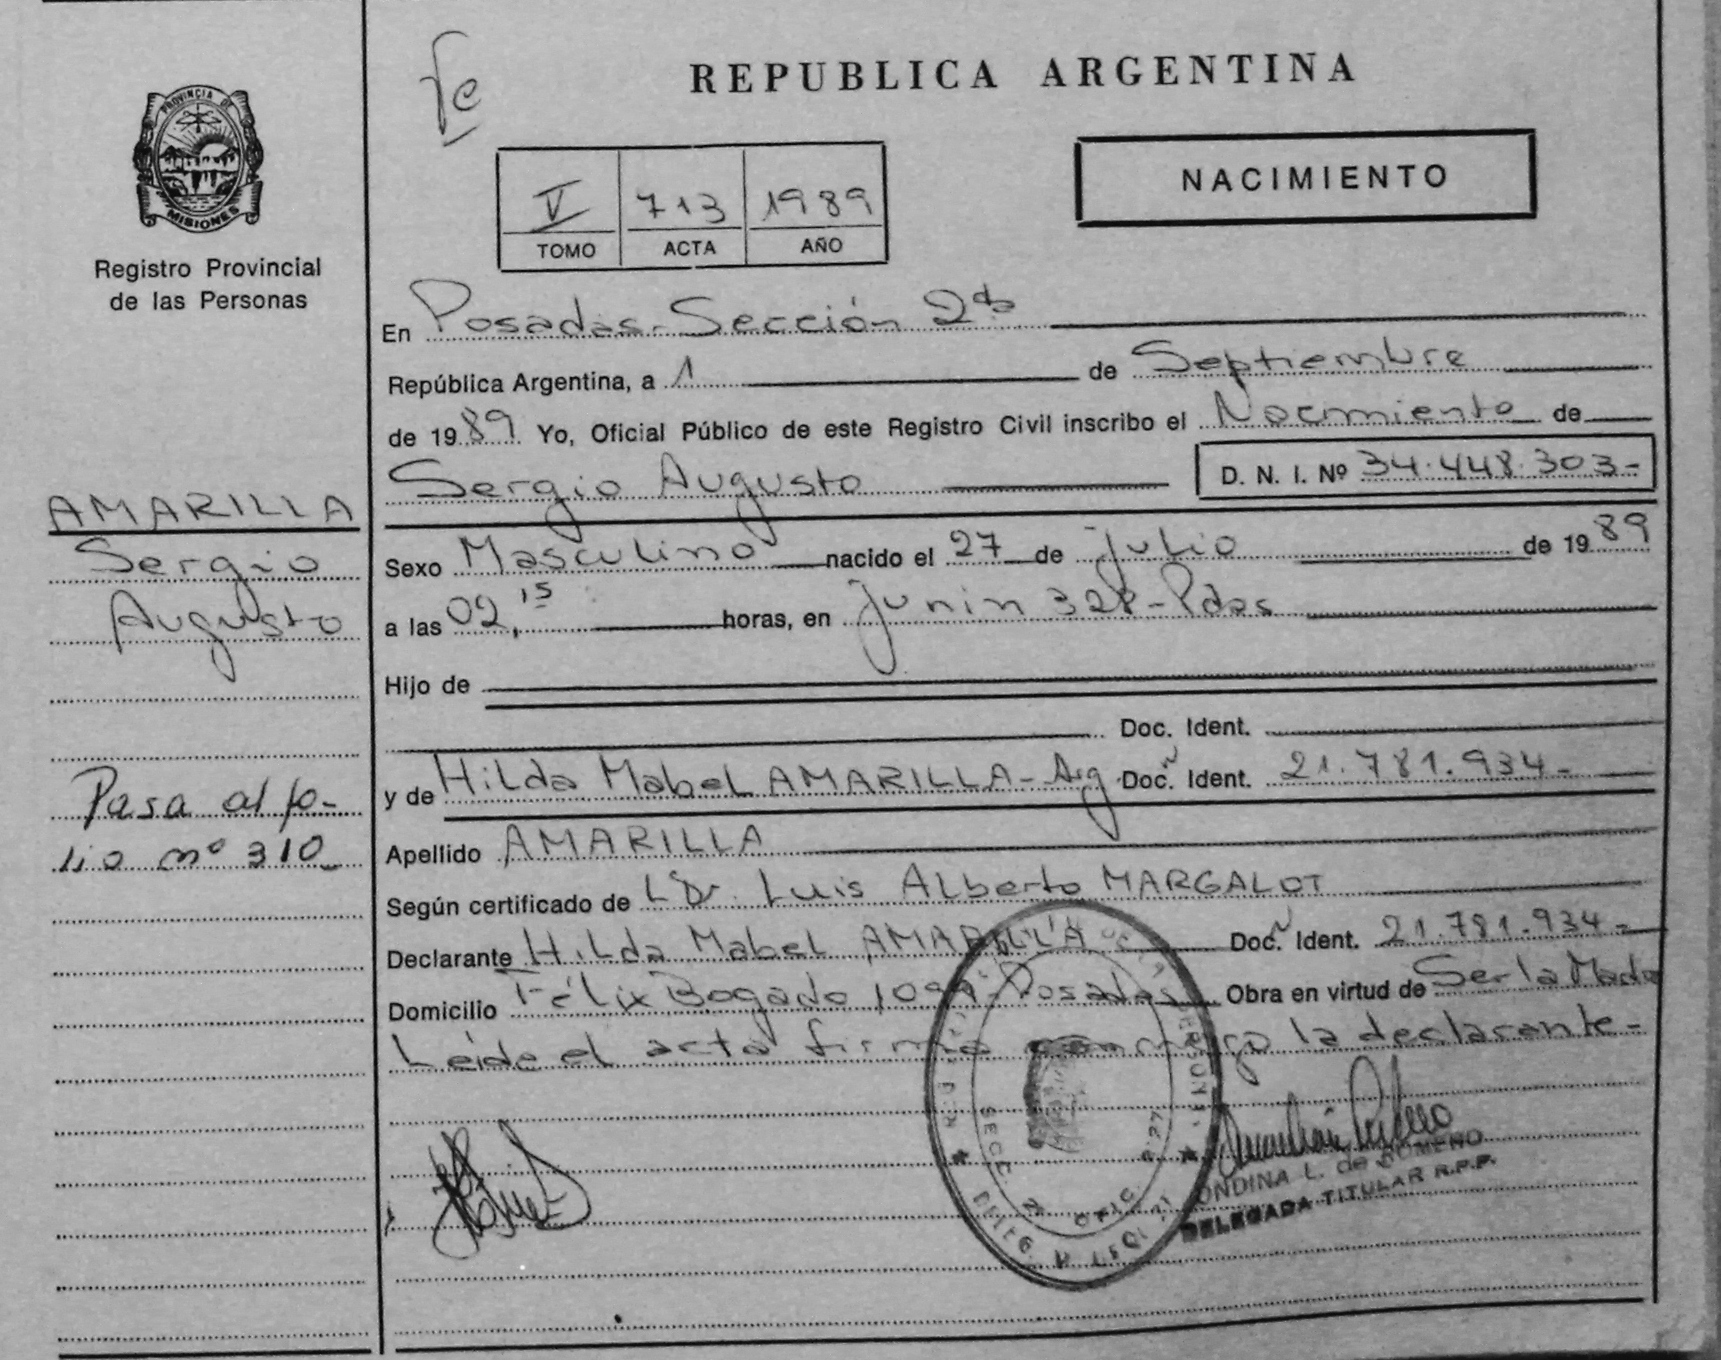 Fe
REPUBLICA ARGENTINA
PROVINCIA DE
MISIONES
Registro Provincial
de las Personas
V 713 1989
TOMO ACTA AÑO
NACIMIENTO
En Posadas-Sección 2da
República Argentina, a 1 de Septiembre
de 1989 Yo, Oficial Público de este Registro Civil inscribo el Nacimiento de
Sergio Augusto D. N. I. Nº 34.448.303-
AMARILLA
Sergio
Augusto
Sexo Masculino nacido el 27 de julio de 1989
a las 02,15 horas, en Junin 328-Pdas
Hijo de
Doc. Ident.
y de Hilda Mabel AMARILLA-Arg Doc. Ident. 21.781.934-
Pasa al fo-
lio nº 310
Apellido AMARILLA
Según certificado de Dr. Luis Alberto MARGALOT
Declarante Hilda Mabel AMARILLA Doc. Ident. 21.781.934-
Domicilio Félix Bogado Posadas Obra en virtud de Ser la Madre
Leida el acta firma conmigo la declarante-
ONDINA L. de ROMERO
DELEGADA TITULAR R.P.P.